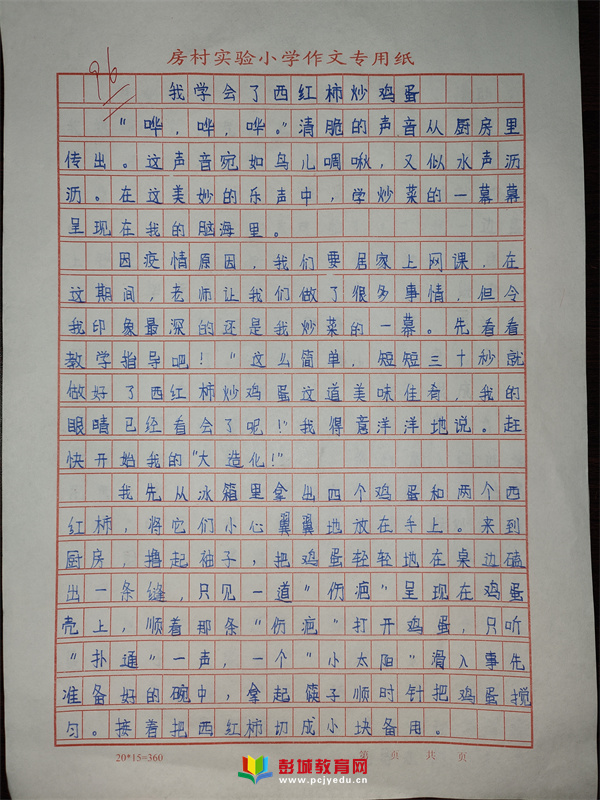 房村实验小学作文专用纸
96
我学会了西红柿炒鸡蛋
“哗，哗，哗。”清脆的声音从厨房里
传出。这声音宛如鸟儿啁啾，又似水声沥
沥。在这美妙的乐声中，学炒菜的一幕幕
呈现在我的脑海里。
因疫情原因，我们要居家上网课，在
这期间，老师让我们做了很多事情，但令
我印象最深的还是我炒菜的一幕。先看看
教学指导吧！“这么简单，短短三十秒就
做好了西红柿炒鸡蛋这道美味佳肴，我的
眼睛已经看会了呢！”我得意洋洋地说。赶
快开始我的“大造化！”
我先从冰箱里拿出四个鸡蛋和两个西
红柿，将它们小心翼翼地放在手上。来到
厨房，撸起袖子，把鸡蛋轻轻地在桌边磕
出一条缝，只见一道“伤疤”呈现在鸡蛋
壳上，顺着那条“伤疤”打开鸡蛋，只听
“扑通”一声，一个“小太阳”滑入事先
准备好的碗中，拿起筷子顺时针把鸡蛋搅
匀。接着把西红柿切成小块备用。
20*15=360
第 页 共 页
彭城教育网
www.pcjyedu.cn